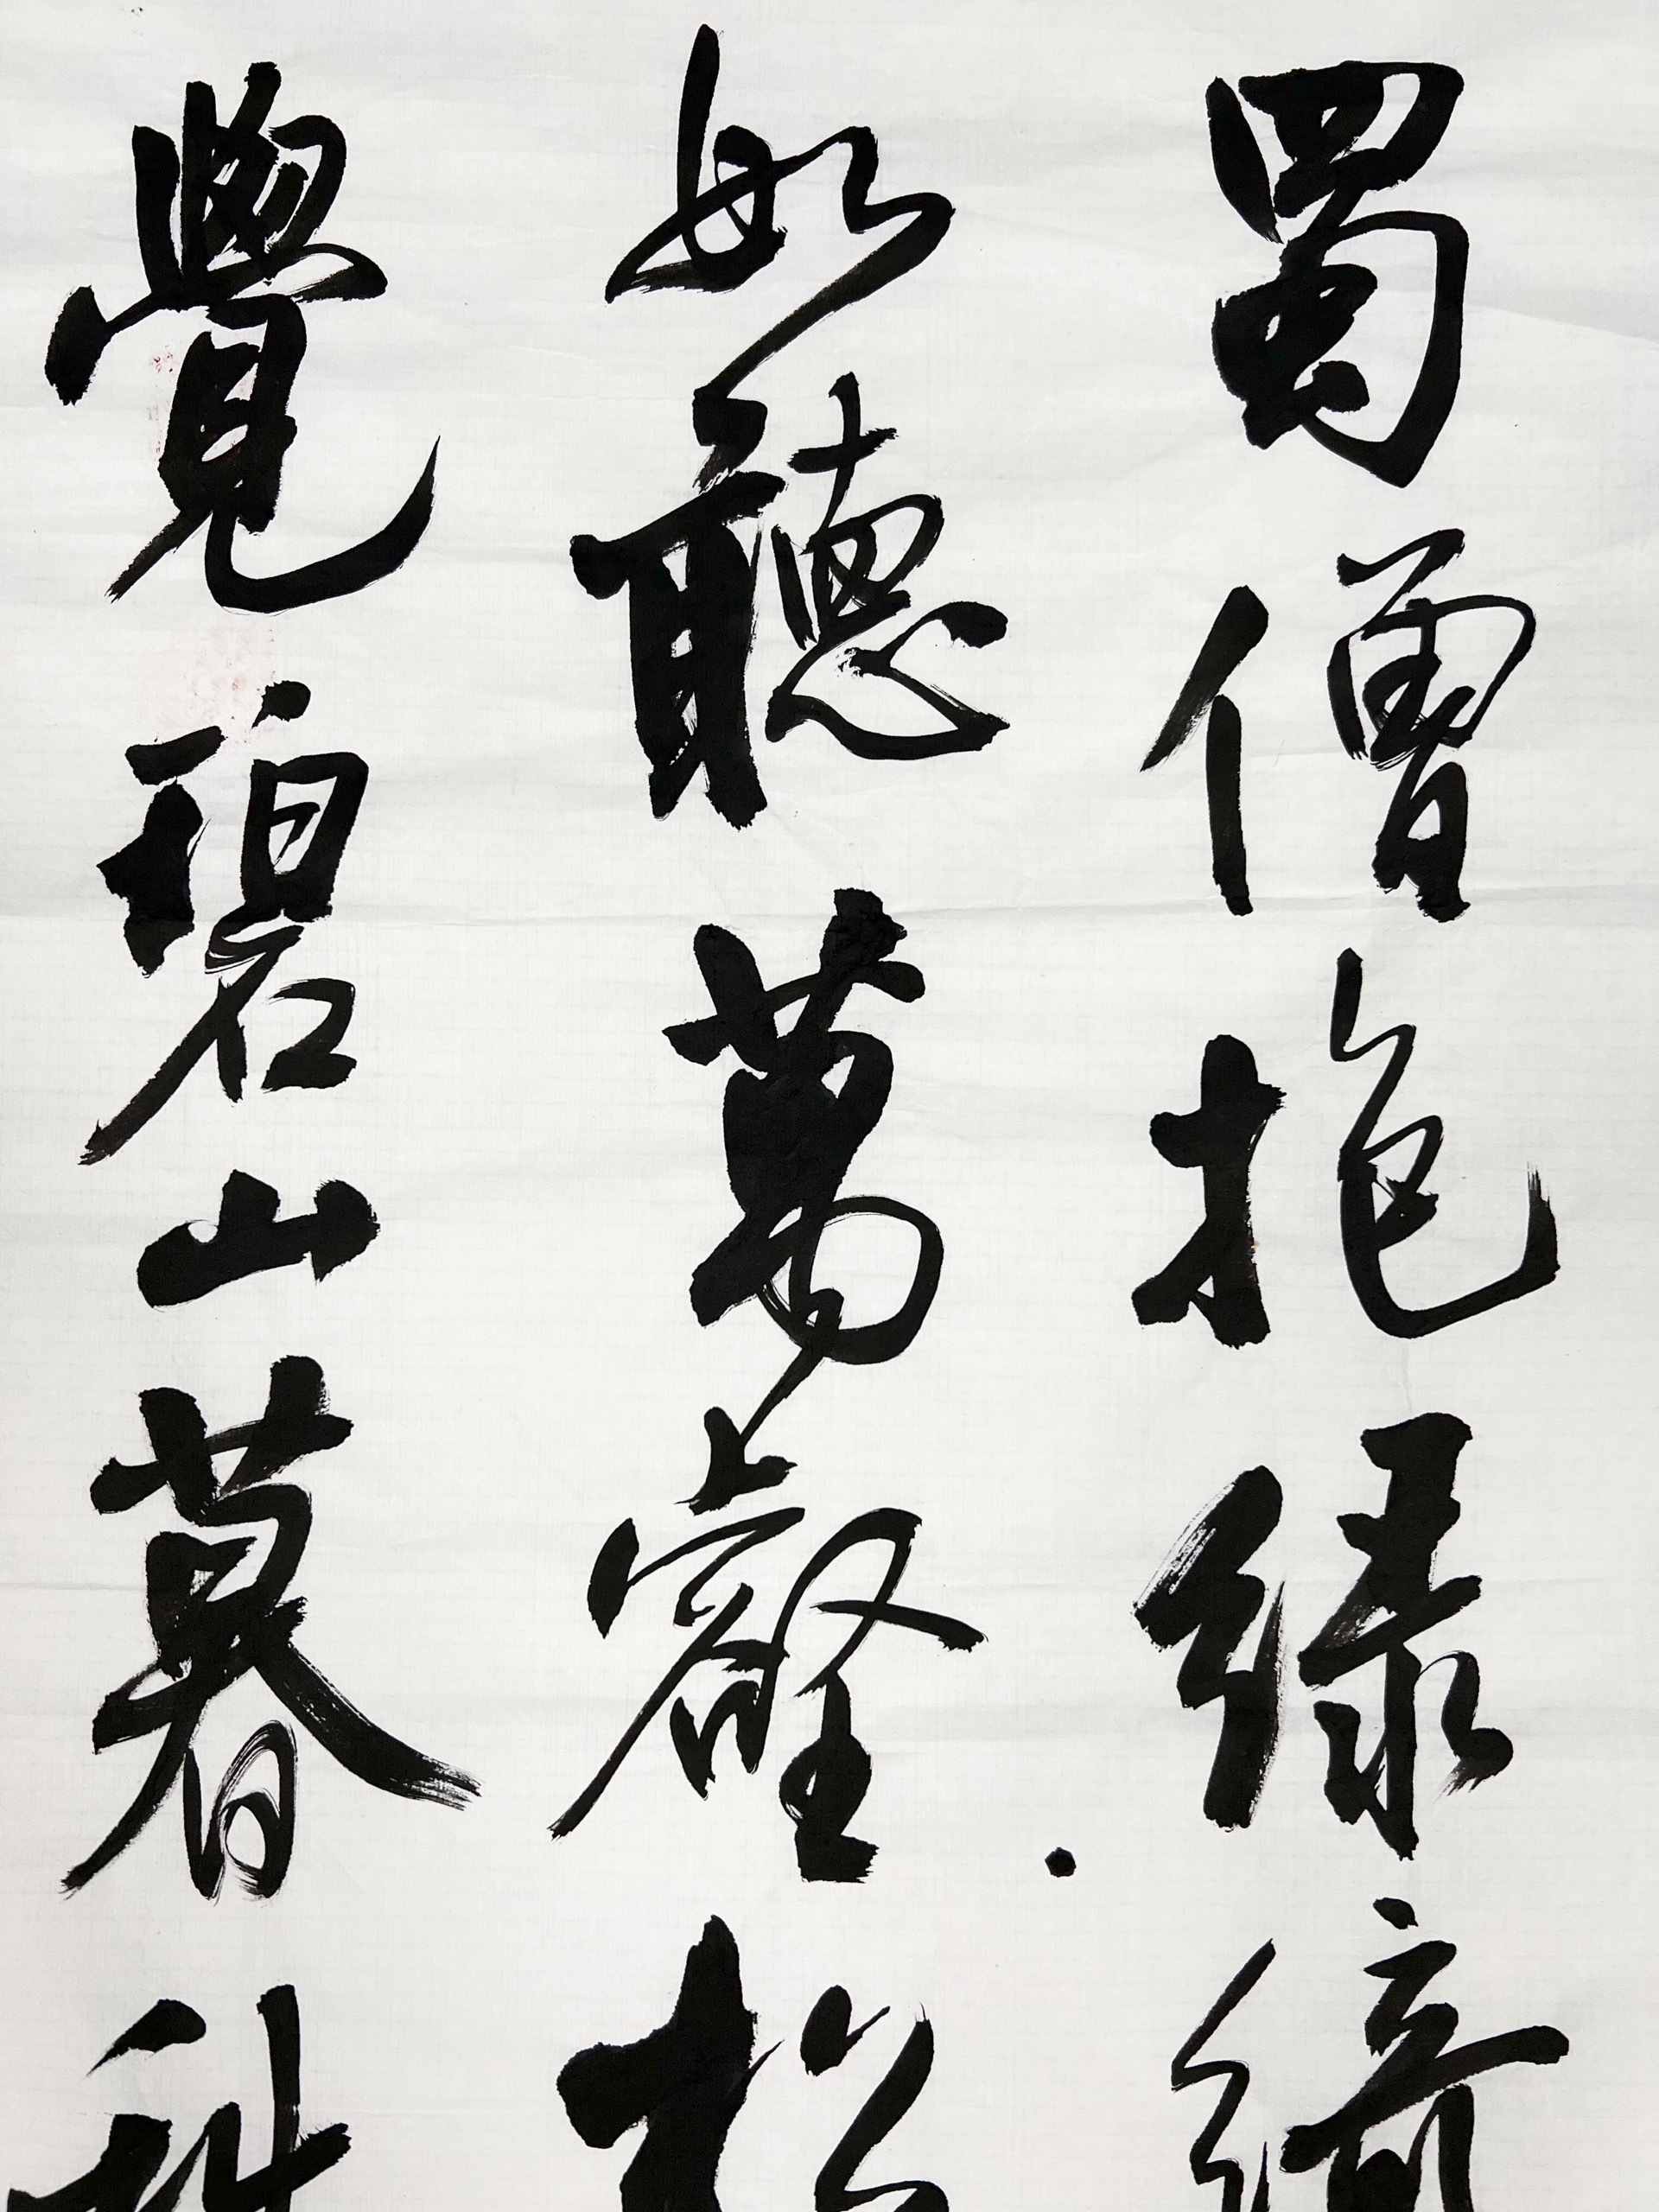 蜀僧抱綠綺
如聽萬壑松
覺碧山暮秋